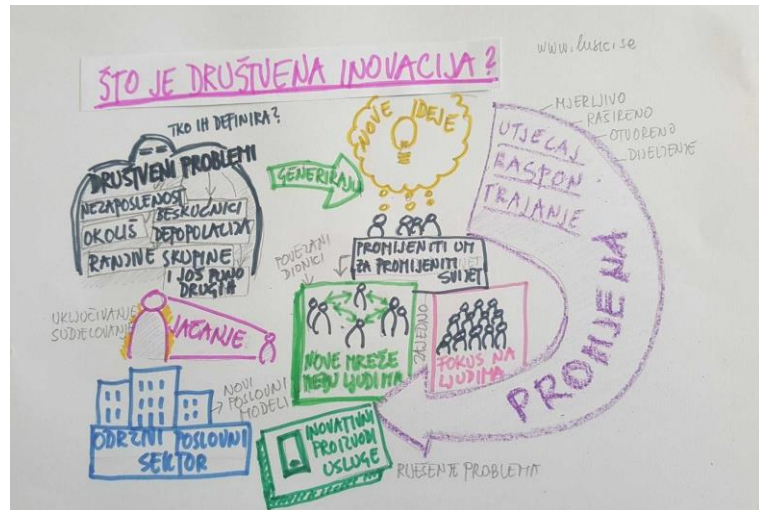 ŠTO JE DRUŠTVENA INOVACIJA?
www.lusic.se
TKO IH DEFINIRA?
DRUŠTVENI PROBLEMI
NEZAPOSLENOST
BESKUĆNICI
OKOLIŠ
DEPOPULACIJA
RANJIVE SKUPINE
I JOŠ PUNO
DRUGIH
GENERIRAJU
NOVE IDEJE
PROMIJENITI UM
ZA PROMIJENITI
SVIJET
MJERLJIVO
RAŠIRENO
OTVORENO
DIJELJENJE
UTJECAJ
RASPON
TRAJANJE
PROMJENA
POVEZANI
DIONICI
UKLJUČIVANJE
SUDJELOVANJE
JAČANJE
NOVE MREŽE
MEĐU LJUDIMA
ZAJEDNO
FOKUS NA
LJUDIMA
NOVI
POSLOVNI
MODELI
ODRŽIVI POSLOVNI
SEKTOR
INOVATIVNI
PROIZVODI
USLUGE
RJEŠENJE PROBLEMA